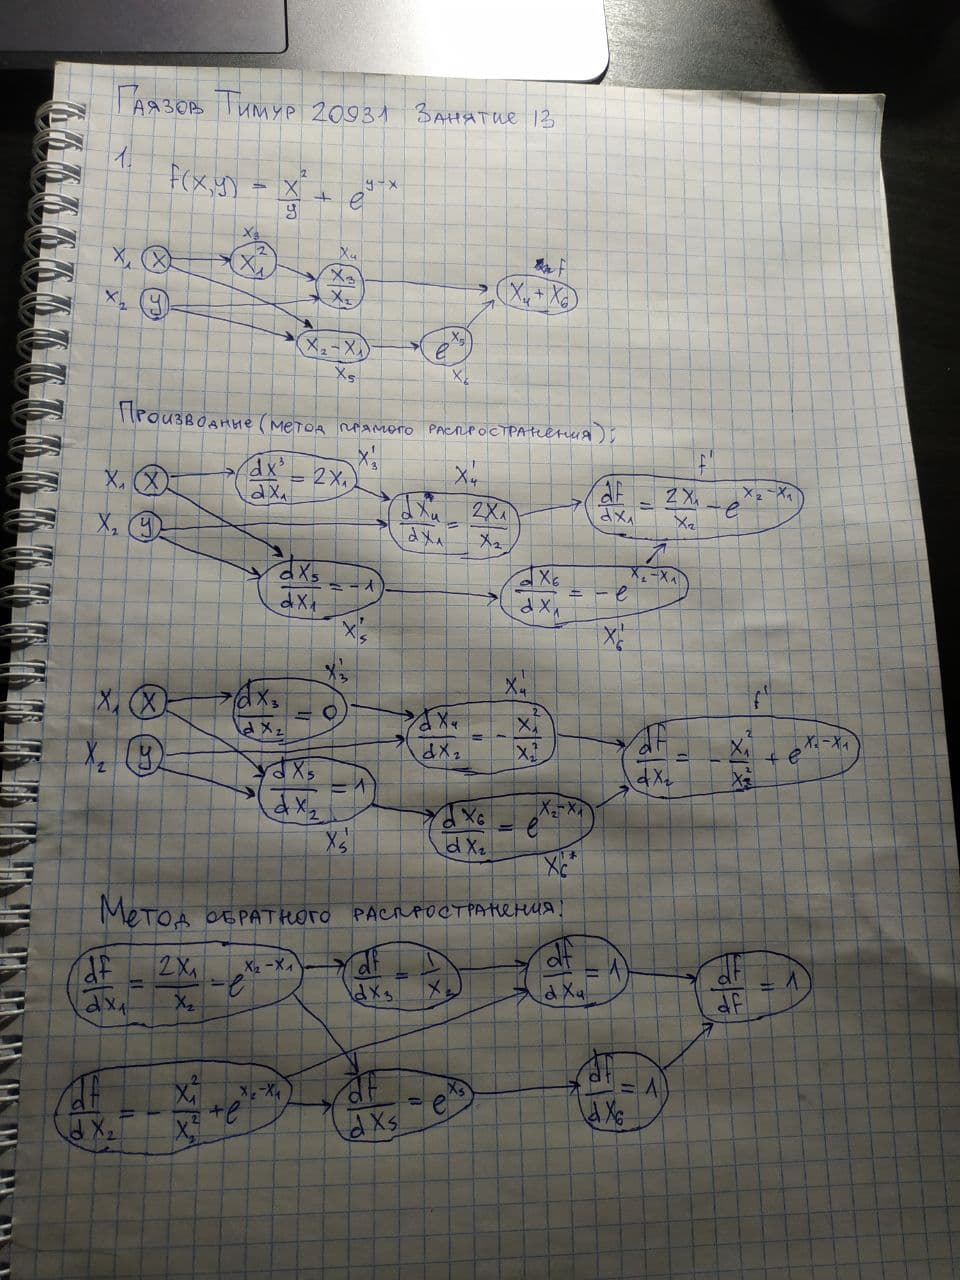 Гаязов Тимур 20931 Занятие 13
1.
f(x,y) = x²/y + e^(y-x)
x₃ x₄ f
x₁ x x₁² x₃/x₂ x₄+x₆
x₂ y x₂-x₁ e^(x₅)
x₅ x₆
Производные (метод прямого распространения):
x₃' x₄' f'
x₁ x dx³/dx₁ = 2x₁ dx₄/dx₁ = 2x₁/x₂ df/dx₁ = 2x₁/x₂ - e^(x₂-x₁)
x₂ y dx₅/dx₁ = -1 dx₆/dx₁ = -e^(x₂-x₁)
x₅' x₆'
x₃' x₄' f'
x₁ x dx₃/dx₂ = 0 dx₄/dx₂ = -x₁²/x₂² df/dx₂ = -x₁²/x₂² + e^(x₂-x₁)
x₂ y dx₅/dx₂ = 1 dx₆/dx₂ = e^(x₂-x₁)
x₅' x₆'
Метод обратного распространения:
df/dx₁ = 2x₁/x₂ - e^(x₂-x₁) df/dx₃ = 1/x₂ df/dx₄ = 1 df/df = 1
df/dx₂ = -x₁²/x₂² + e^(x₂-x₁) df/dx₅ = e^(x₅) df/dx₆ = 1